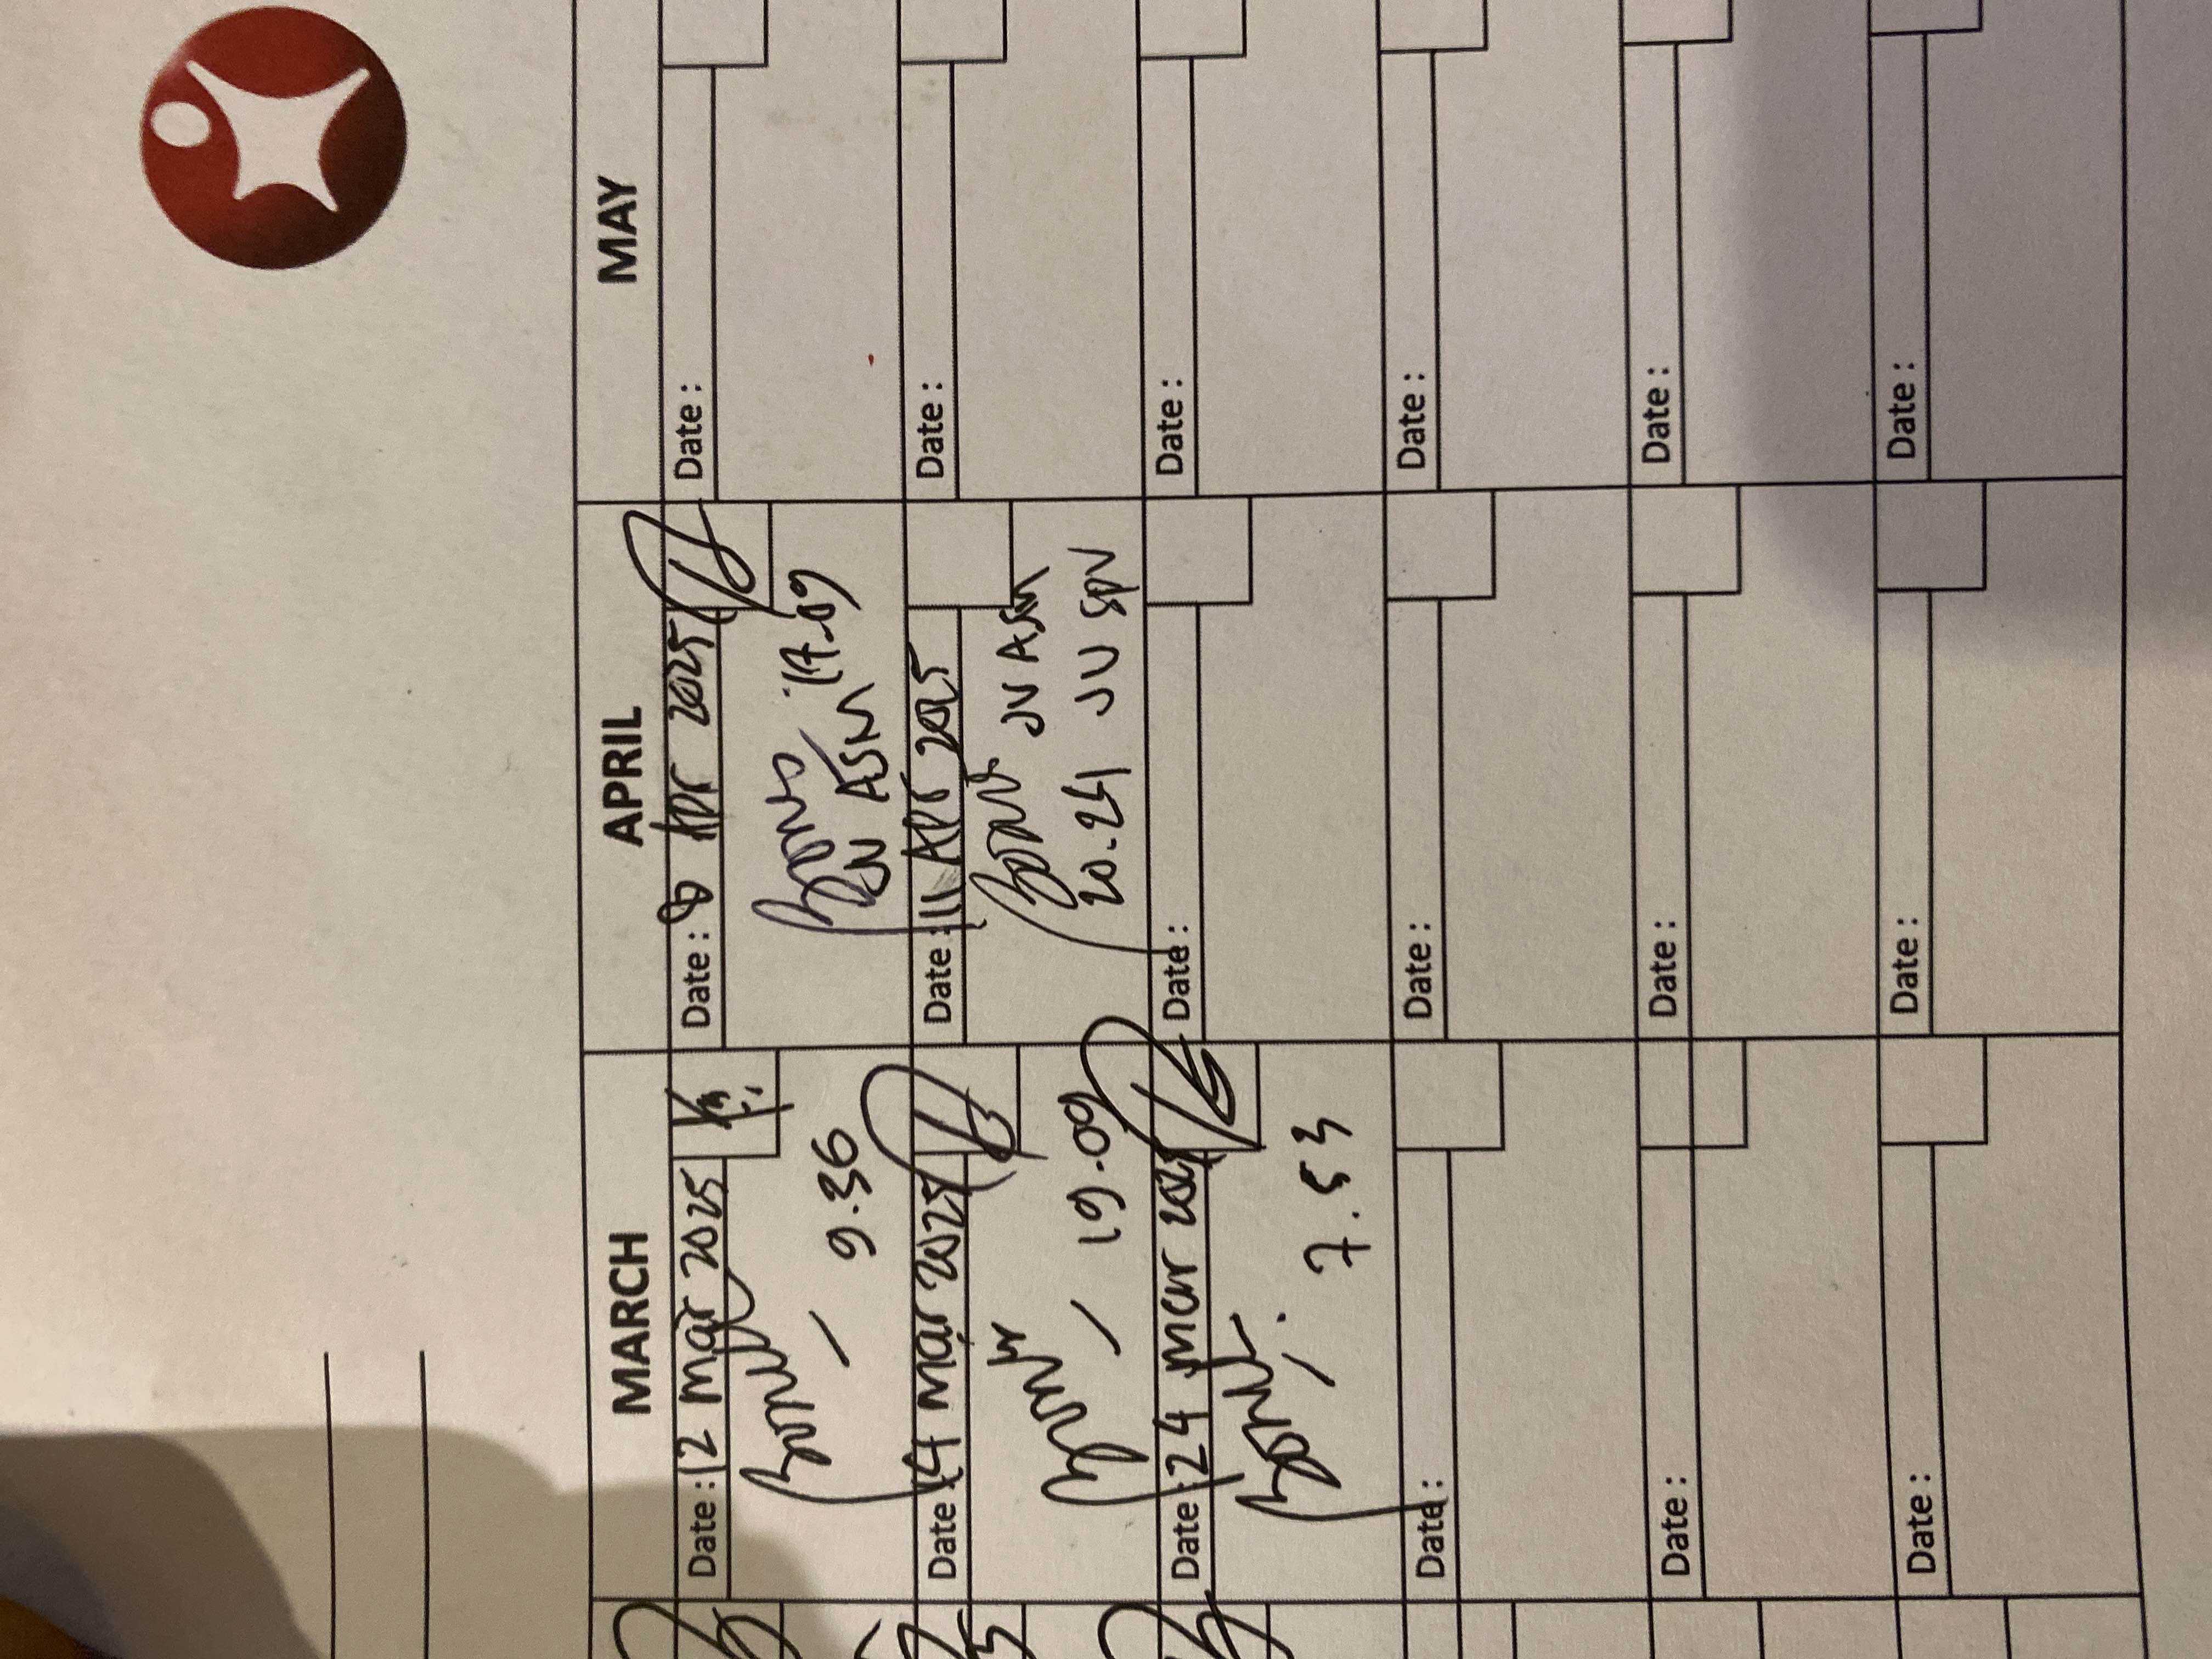 MARCH
APRIL
MAY
Date : 12 mar 2025
9.36
Date : 8 Apr 2025
17.09
JV ASM
Date :
Date : 14 mar 2025
19.09
Date : 11 Apr 2025
JV ASM
20.21 JV SPV
Date :
Date : 24 mar 2025
7.53
Date :
Date :
Date :
Date :
Date :
Date :
Date :
Date :
Date :
Date :
Date :